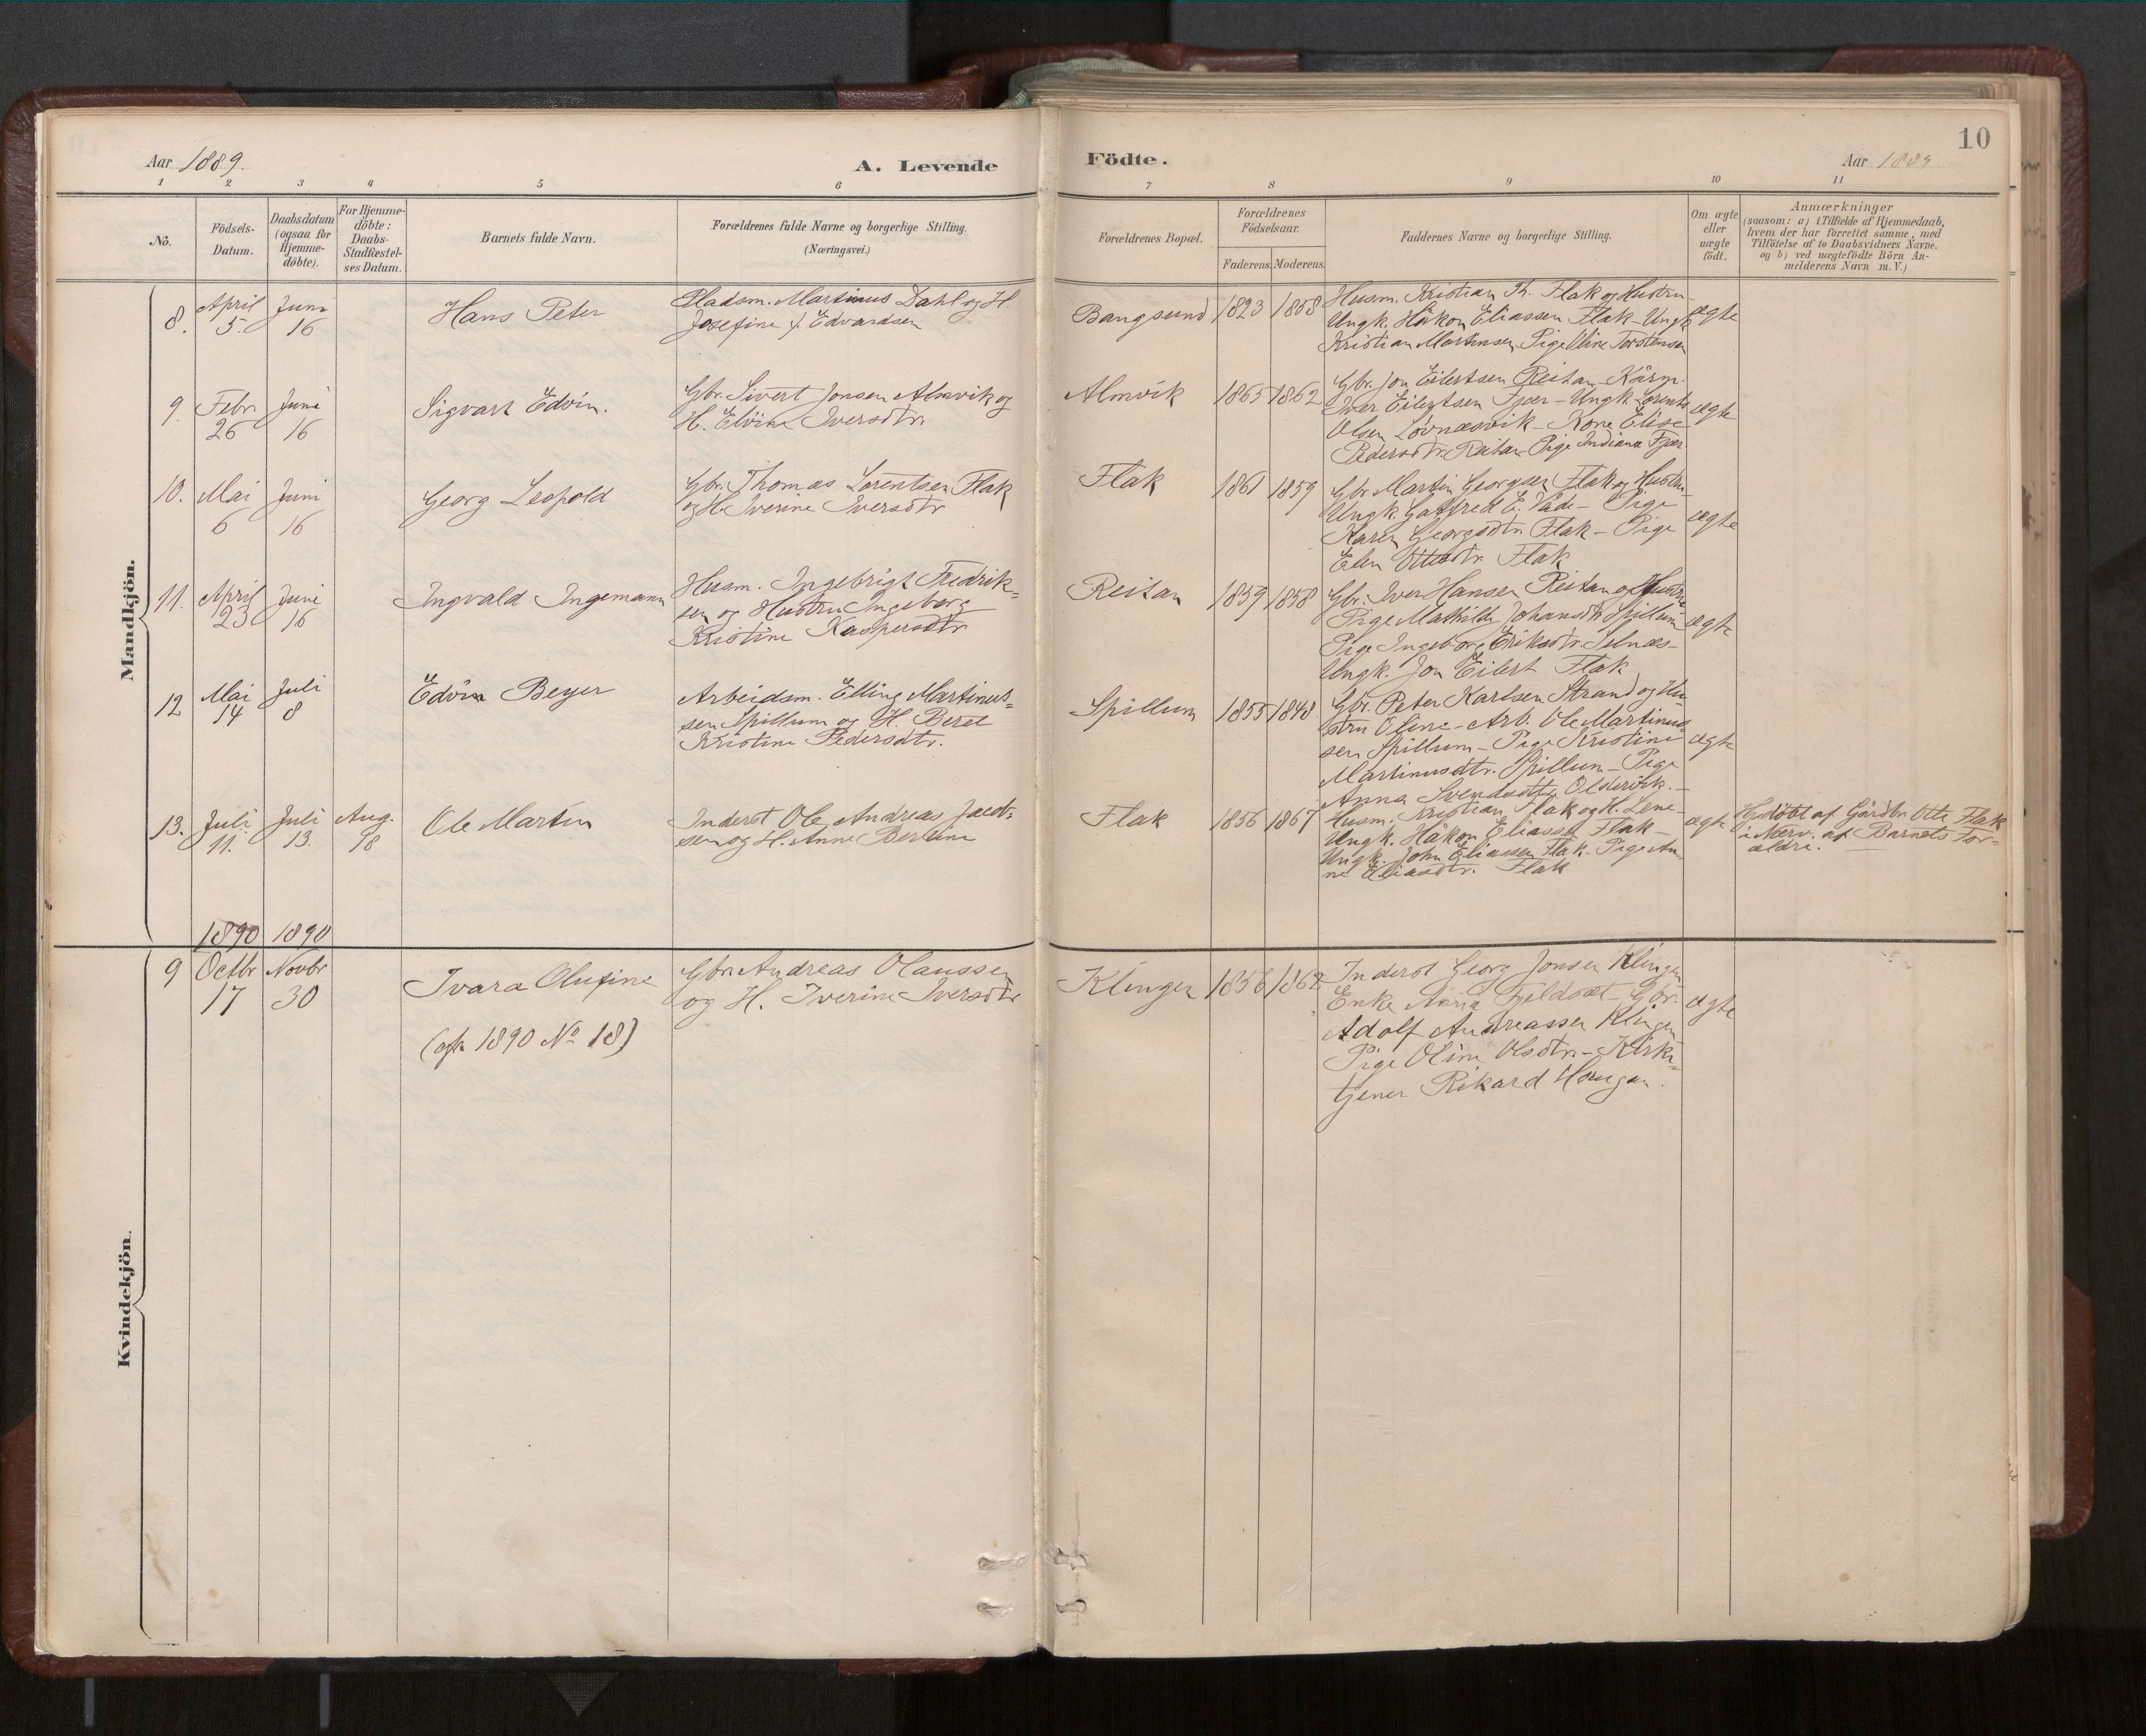 10
Aar 1889.
A. Levende
Födte.
Aar 1889
1 2 3 4 5 6
7 8 9 10 11
No.
Födsels-
Datum.
Daabsdatum
(ogsaa for
Hjemme-
döbte).
For Hjemme-
döbte:
Daabs-
Stadfæstel-
ses Datum.
Barnets fulde Navn.
Forældrenes fulde Navne og borgerlige Stilling.
(Næringsvei.)
Forældrenes Bopæl.
Forældrenes
Födselsaar.
Faderens. Moderens.
Faddernes Navne og borgerlige Stilling.
Om ægte
eller
uægte
födt.
Anmærkninger
(saasom: a) i Tilfælde af Hjemmedaab,
hvem der har forrettet samme, med
Tilföielse af to Daabsvidners Navne.
og b) ved uægtefödte Börn An-
melderens Navn m. V.)
Mandkjön.
8.
April
5.
Juni
16
Hans Peter
Pladsm. Martinus Dahl og H.
Josefine f. Edvardsen
Bangsund
1823
1858
Husm. Kristian Th. Flak og Hustru
Ungk. Håkon Eliassen Flak - Ungk
Kristian Martinsen. Pige Oline Torstensen
ægte
9.
Febr
26
Juni
16
Sigvart Edvin.
Gbr. Sivert Jonsen Almvik og
H. Elvine Iversdtr
Almvik
1865
1862
Gbr. Jon Eilertsen Reitan
Iver Eilertsen Fjær - Ungk. Lorents
Olsen Lövnæsvik - Kone Elise
Pedersdtr. Reitan - Pige Indiana Fjær
ægte
10.
Mai
6
Juni
16
Georg Leopold
Gbr. Thomas Lorentsen Flak
og H. Iverine Iversdtr
Flak
1861
1859
Gbr Martin Georgsen Flak og Hustru
Ungk. Gotfred E. - Pige
Karen Georgsdtr. Flak - Pige
Elen Ottesdtr. Flak
ægte
11.
April
23
Juni
16
Ingvald Ingemann
Husm. Ingebrigt Fredrik-
sen og Hustru Ingeborg
Kristine Kaspersdtr
Reitan
1859
1858
Gbr. Iver Hansen Reitan og Hustru
Pige Mathilde Johansdtr Spillum
Pige Ingeborg Eriksdtr. Selnæs -
Ungk. Jon Eilert Flak
ægte
12
Mai
14
Juli
8
Edvin Beyer
Arbeidsm. Elling Martinus-
sen Spillum og H. Beret
Kristine Pedersdtr.
Spillum
1855
1848
Gbr. Peter Karlsen Strand og Hu-
stru Oline - Arb. Ole Martinus-
sen Spillum - Pige Kristine
Martinusdtr. Spillum - Pige
Anna Svendsdtr Oldervik. -
ægte
13.
Juli
11.
Juli
13.
Aug.
18
Ole Martin
Inderst Ole Andreas Jacob-
sen og H. Anne Bertine
Flak
1856
1867
Husm. Kristian Flak og H. Lene -
Ungk. Håkon Eliassen Flak -
Ungk. John Eliassen Flak - Pige An-
ne Eliasdtr. Flak
ægte
Hjdöbt af Gårdbr Otte Flak
i Nærv. af Barnets For-
ældre.
1890 1890
Kvindekjön.
9
Octbr
17
Novbr
30
Ivara Olufine
(cfr 1890 No 18)
Gbr. Andreas Olaussen
og H. Iverine Iversdtr
Klingen
1856
1862
Inderst Georg Jonsen Klingen
Enke Anna Fjeldsæt - Gbr.
Adolf Andreassen Klingen
Pige Oline Olsdtr. - Kirke-
tjener Rikard Haugan.
ægte